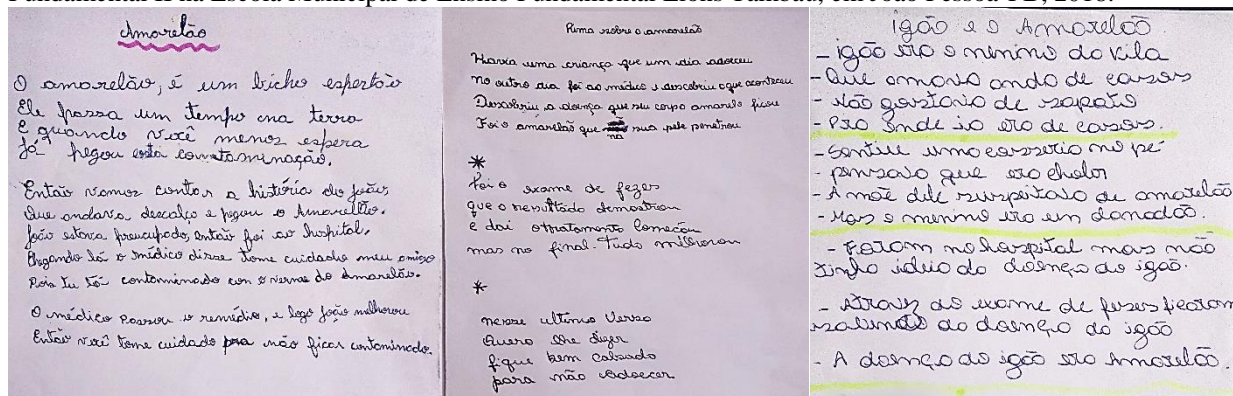 Fundamental II na Escola Municipal de Ensino Fundamental Lions Tambaú, em João Pessoa-PB, 2018.
Amarelão
O amarelão, é um bicho espertão
Ele passa um tempo na terra
E quando você menos espera
Já pegou esta contaminação.
Então vamos contar a história do joão
Que andava descalço e pegou o Amarelão.
joão estava preucupado, então foi ao hospital.
Chegando lá o médico disse tome cuidado meu amigo
Pois tu tá contaminado com o verme do Amarelão.
O médico passou o remédio, e logo joão milhorou
Então você tome cuidado pra não ficar contaminado.
Rima sobre o amarelão
Havia uma criança que um dia adoeceu
No outro dia foi ao médico e descobriu o que aconteceu
Descobriu a doença que seu corpo amarelo ficou
Foi o amarelão que na sua pele penetrou
*
Foi o exame de fezes
que o resultado demostrou
e daí o tratamento começou
mas no final tudo milhorou
*
nesse ultimo Verso
Quero lhe dizer
fique bem calsado
para não adoecer
igão e o Amarelão
- igão era o menino da vila
- Que amava anda de
- Não gostava de sapato
- Pra onde ia era de
- Sentiu uma no pé
- pensava que era chulér
- A mãe dele suspeitava de amarelão
- Mas o menino era um danadão.
- Foram no hospital mas não
tinha ideia da doença do igão.
- Atravz do exame de feses ficaram
sabendo da doença do igão
- A doença do igão era Amarelão.